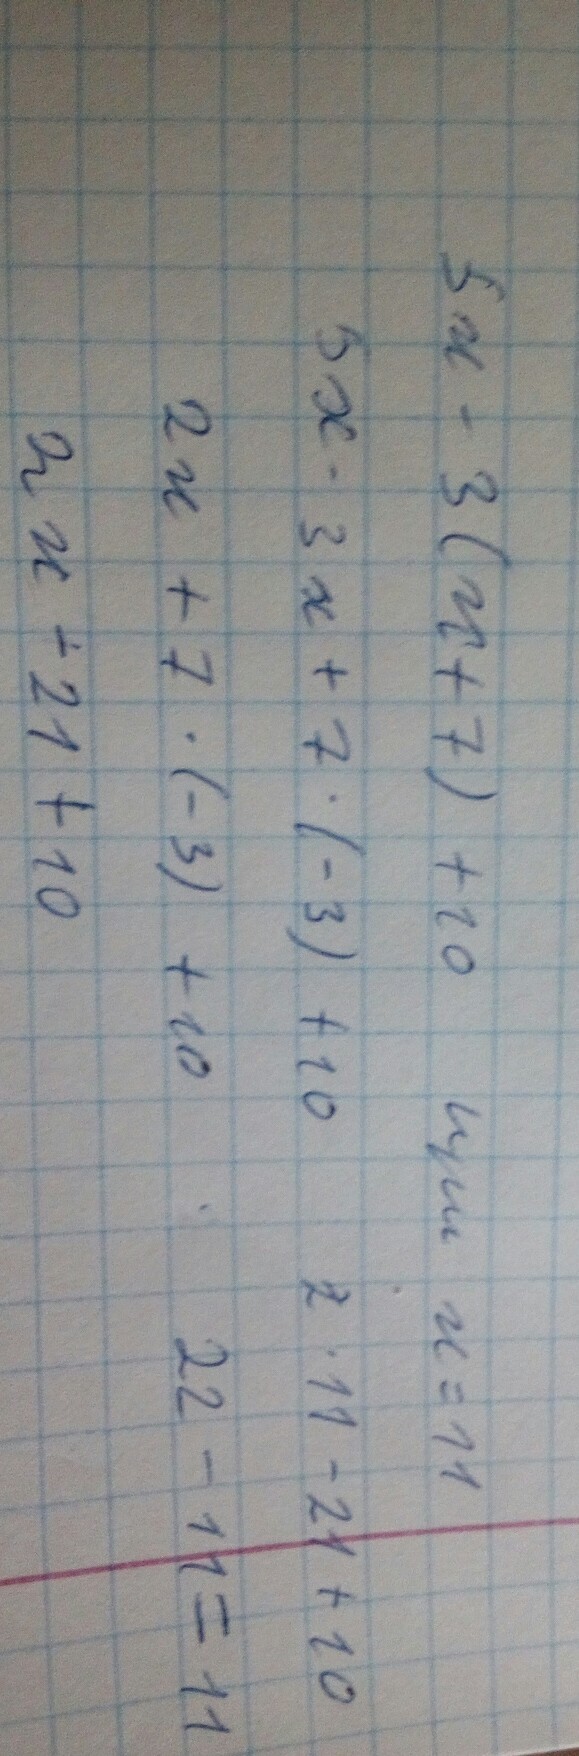 5x - 3(x+7) +10 при x=11
5x - 3x + 7·(-3) +10 2·11-21+10
2x +7·(-3) +10 22-11=11
2x -21+10